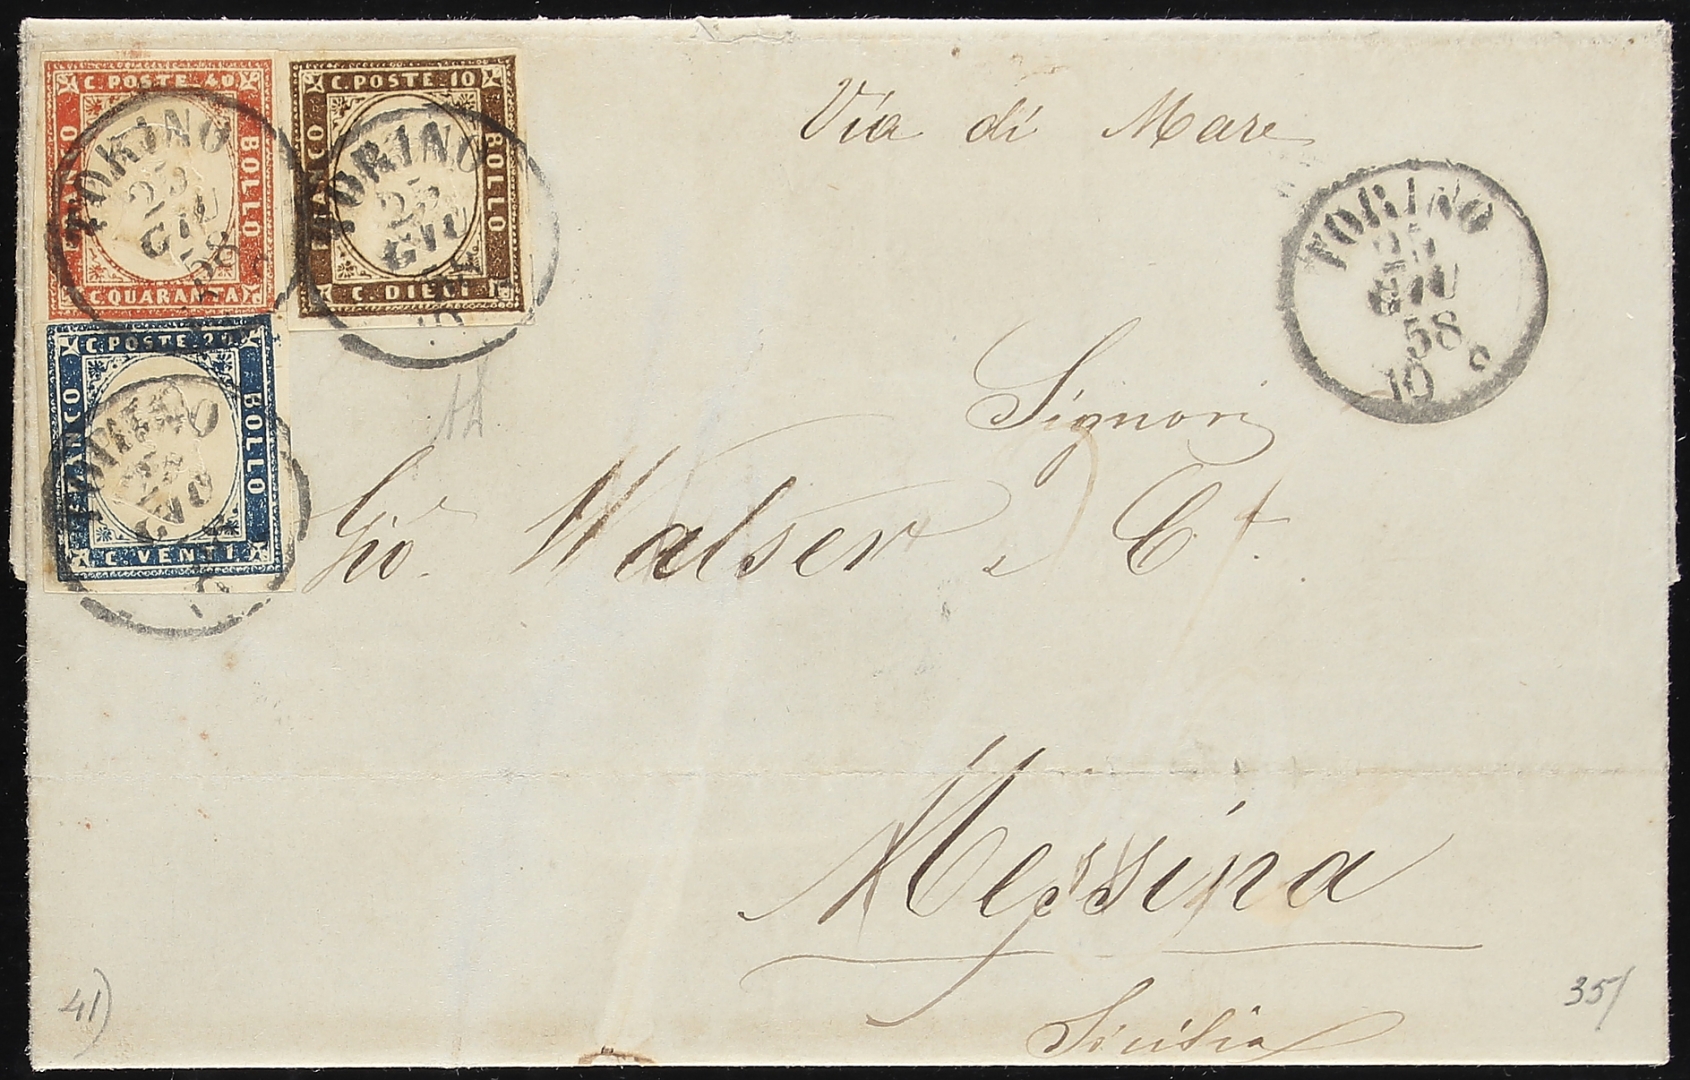 C. POSTE 40
FRANCO
BOLLO
C. QUARANTA
TORINO
25
GIU
58
C. POSTE 10
FRANCO
BOLLO
C. DIECI
TORINO
25
GIU
58
10
C. POSTE 20
FRANCO
BOLLO
C. VENTI
TORINO
25
GIU
10
Via di Mare
TORINO
25
GIU
58
10
Signori
Gio. Walser e C.
Messina
Sicilia
41)
35/